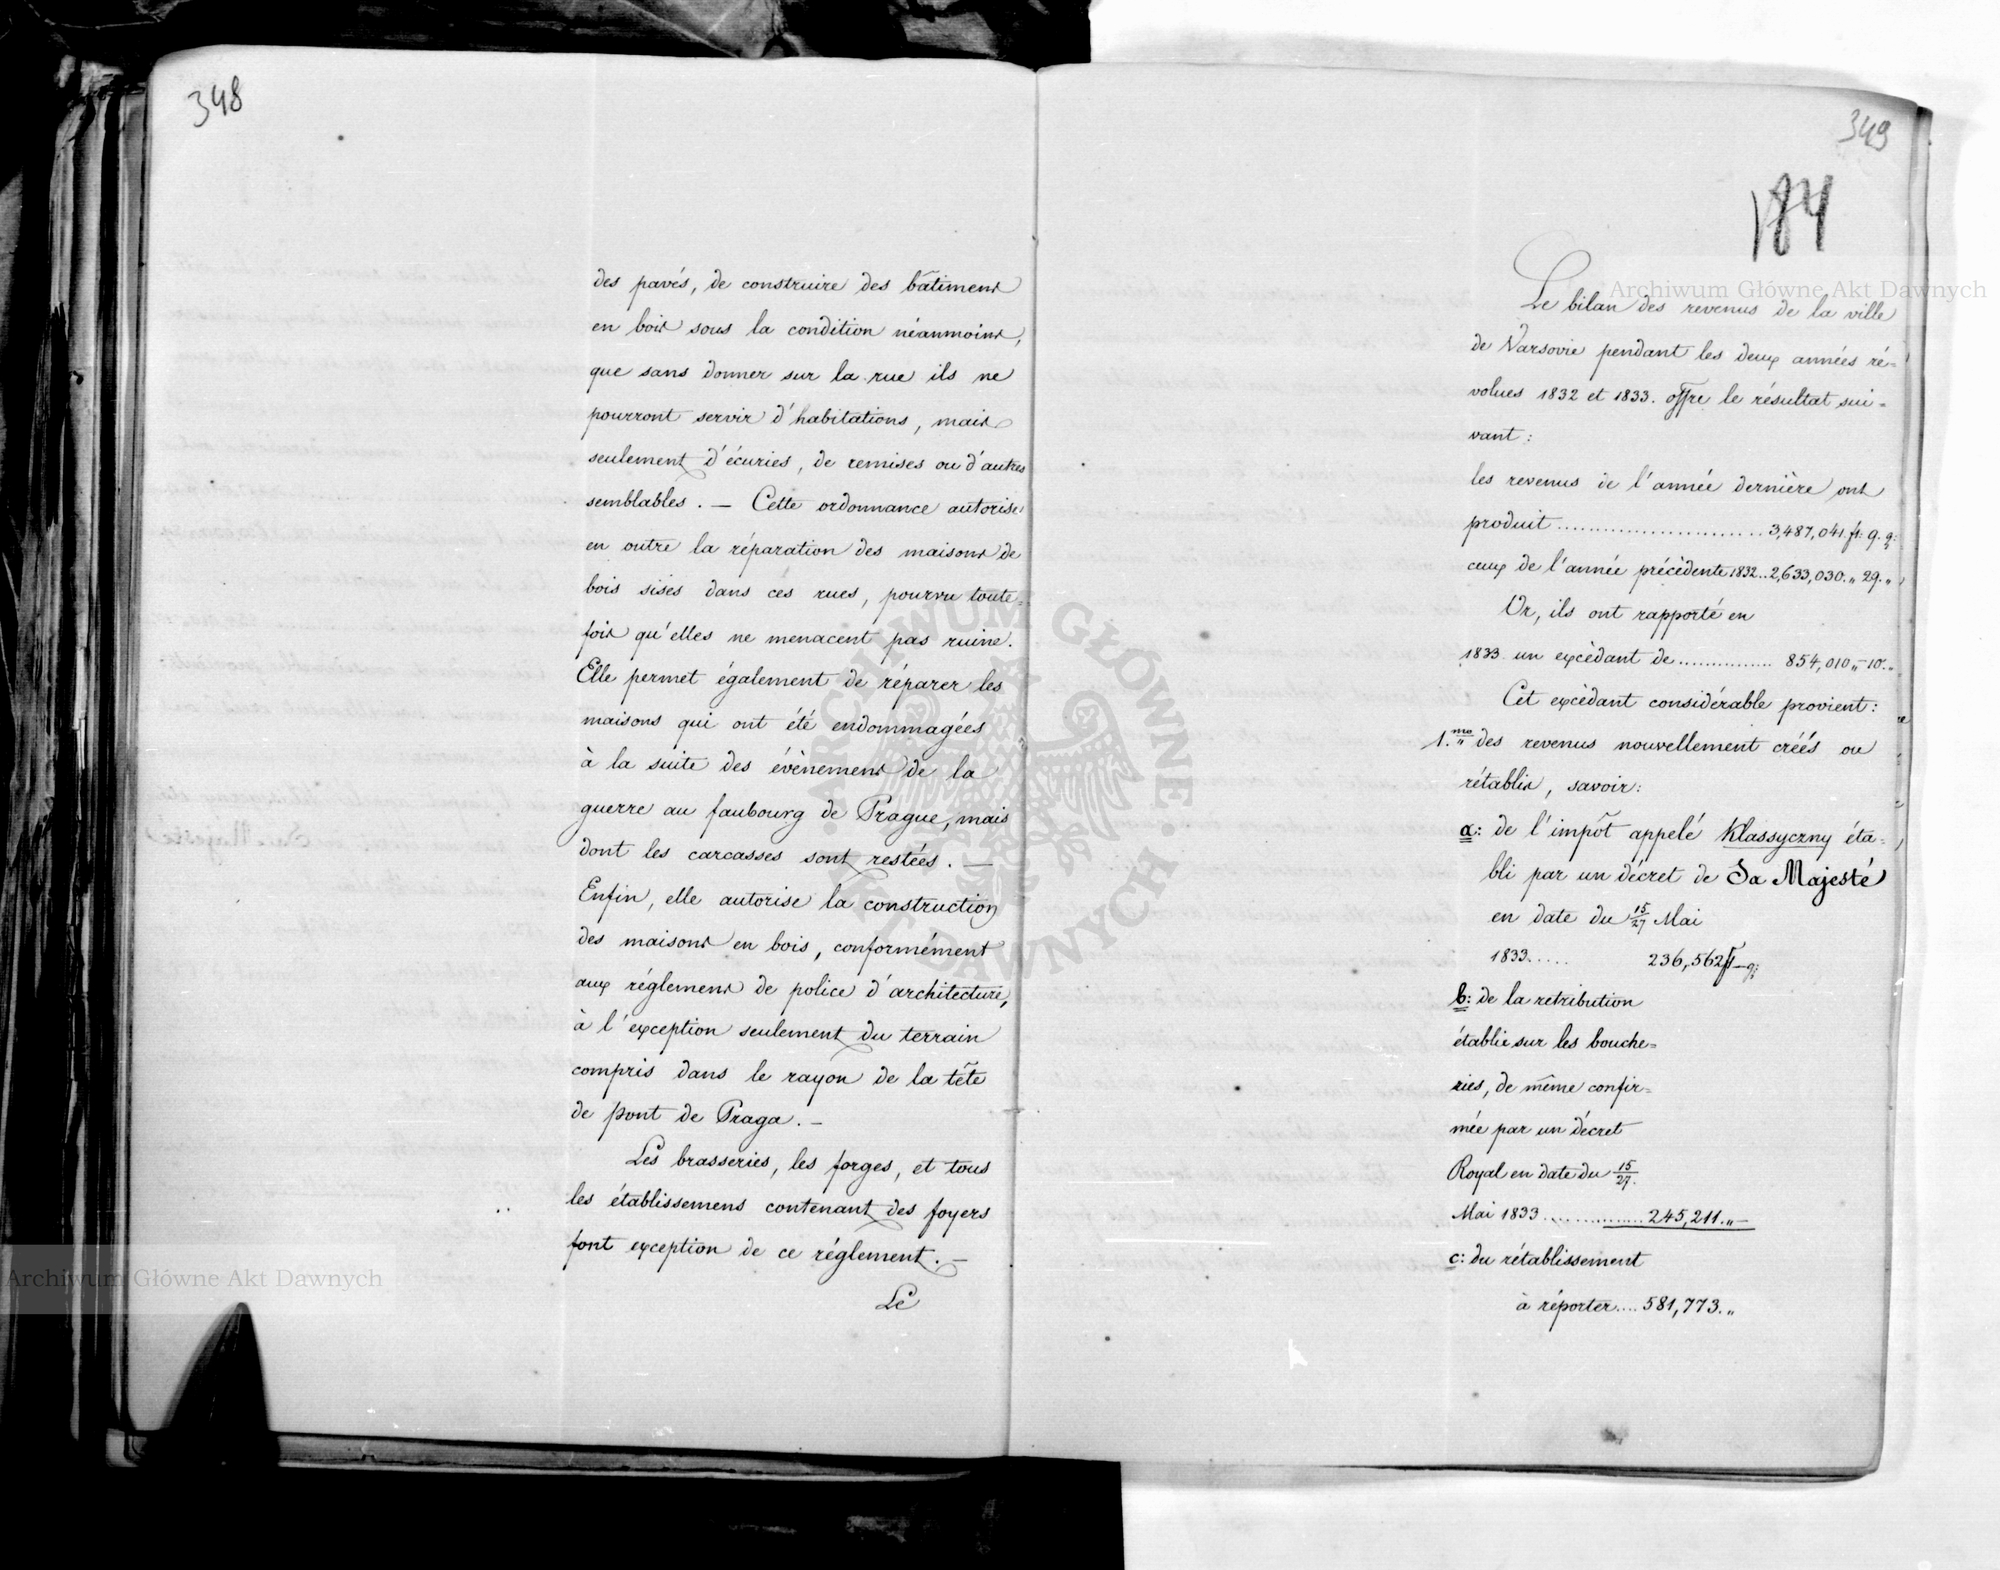 348
des pavés, de construire des bâtimens
en bois sous la condition néanmoins,
que sans donner sur la rue ils ne
pourront servir d'habitations, mais
seulement d'écuries, de remises ou d'autres
semblables. — Cette ordonnance autorise
en outre la réparation des maisons de
bois sises dans ces rues, pourvu toute=
fois qu'elles ne menacent pas ruine.
Elle permet également de réparer les
maisons qui ont été endommagées
à la suite des évènemens de la
guerre au faubourg de Prague, mais
dont les carcasses sont restées. —
Enfin, elle autorise la construction
des maisons en bois, conformément
aux réglemens de police d'architecture,
à l'exception seulement du terrain
compris dans le rayon de la tête
de pont de Praga. —
Les brasseries, les forges, et tous
les établissemens contenant des foyers
font exception de ce réglement. —
Le
349
184
Le bilan des revenus de la ville
de Varsovie pendant les deux années ré=
volues 1832 et 1833. offre le résultat sui=
vant:
les revenus de l'année dernière ont
produit .......................... 3,487,041. fl: 9. g:
ceux de l'année précédente 1832... 2,633,030. „ 29. „
Or, ils ont rapporté en
1833 un excèdant de ............... 854,010 „ 10. „
Cet excèdant considérable provient:
1.mo des revenus nouvellement créés ou
rétablis, savoir:
a: de l'impôt appelé Klassyczny éta=
bli par un décret de Sa Majesté
en date du 15/27 Mai
1833..... 236,562 fl — g:
b: de la retribution
établie sur les bouche=
ries, de même confir=
mée par un décret
Royal en date du 15/27.
Mai 1833 ............... 245,211. „ —
c: du rétablissement
à réporter.... 581,773. „
Archiwum Główne Akt Dawnych
Archiwum Główne Akt Dawnych
ARCHIWUM GŁÓWNE AKT DAWNYCH